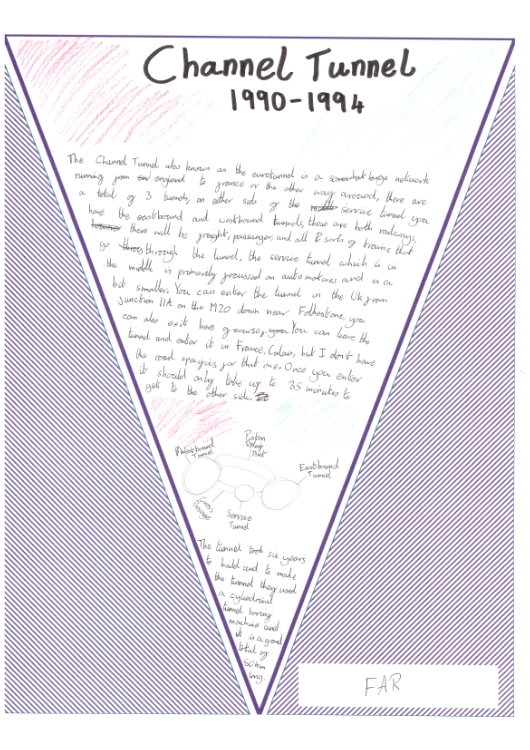 Channel Tunnel
1990-1994
The Channel Tunnel also known as the eurotunnel is a somewhat large network
running from england to france or the other way around, there are
a total of 3 tunnels, on either side of the service tunnel you
have the eastbound and westbound tunnels, these are both railways,
there will be freight, passenger, and all sorts of trains that
go through the tunnel, the service tunnel which is in
the middle is primarily focussed on automotives and is a
bit smaller. You can enter the tunnel in the Uk from
Junction 11A on the M20 down near Folkestone, you
can also exit here of course, you can leave the
tunnel and enter it in France, Calais, but I don't have
the road specifics for that one. Once you enter
it should only take up to 35 minutes to
get to the other side.
Westbound
Tunnel
Piston
Relief
Duct
Eastbound
Tunnel
Cross
Passage
Service
Tunnel
The tunnel took six years
to build and to make
the tunnel they used
a cylindrical
tunnel boring
machine and
it is a grand
total of
50km
long.
FAR